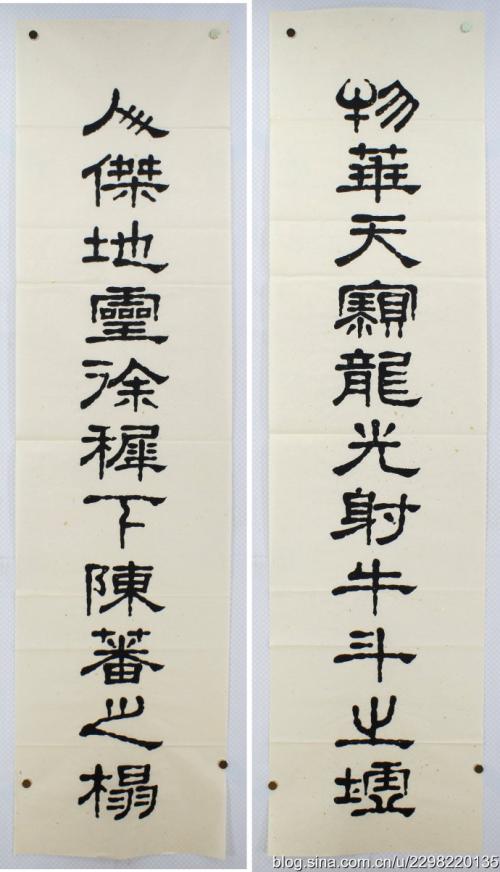 物華天寶龍光射牛斗之墟
人傑地靈徐稺下陳蕃之榻
blog.sina.com.cn/u/2298220135